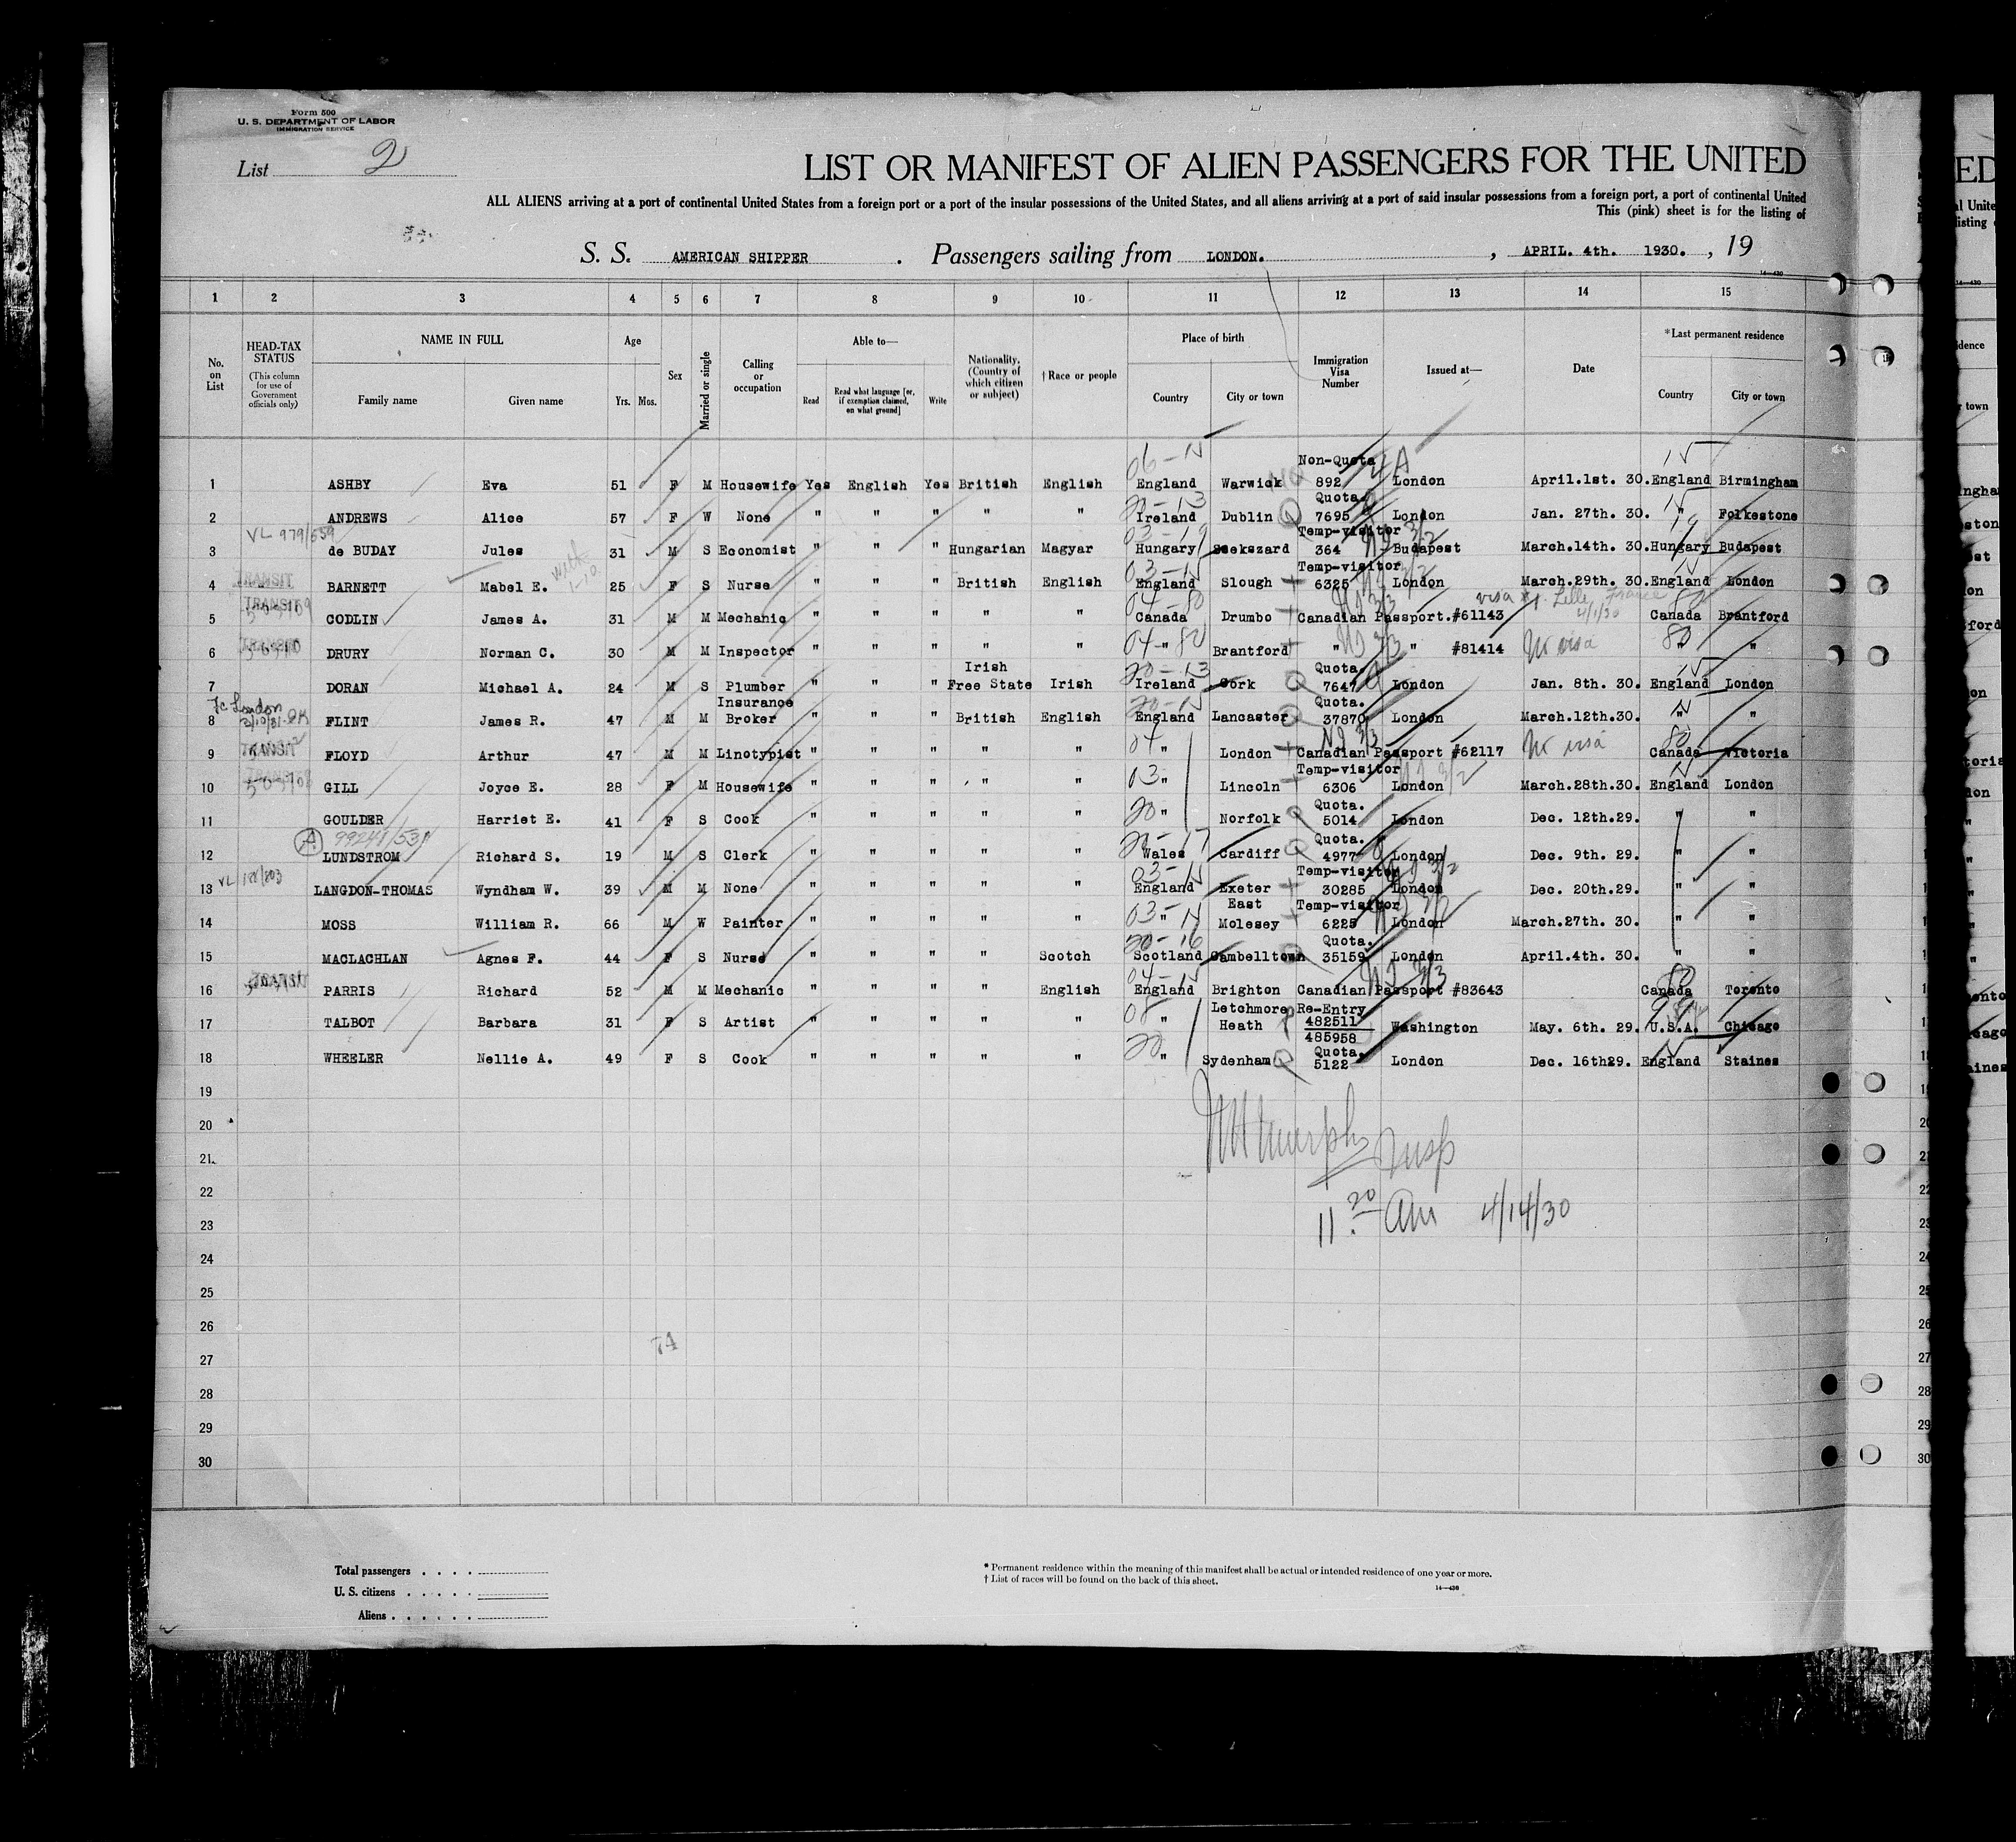 Form 500
U. S. DEPARTMENT OF LABOR
IMMIGRATION SERVICE
List 2
LIST OR MANIFEST OF ALIEN PASSENGERS FOR THE UNITED
ALL ALIENS arriving at a port of continental United States from a foreign port or a port of the insular possessions of the United States, and all aliens arriving at a port of said insular possessions from a foreign port, a port of continental United
This (pink) sheet is for the listing of
S. S. AMERICAN SHIPPER . Passengers sailing from LONDON. , APRIL. 4th. 1930. , 19
14—430
1 2 3 4 5 6 7 8 9 10 11 12 13 14 15
No. on List
HEAD-TAX STATUS (This column for use of Government officials only)
NAME IN FULL Family name Given name
Age Yrs. Mos.
Sex
Married or single
Calling or occupation
Able to— Read Read what language [or, if exemption claimed, on what ground] Write
Nationality. (Country of which citizen or subject)
† Race or people
Place of birth Country City or town
Immigration Visa Number
Issued at—
Date
*Last permanent residence Country City or town
06-15 Non-Quota 15
1 ASHBY Eva 51 F M Housewife Yes English Yes British English England Warwick 892 London April.1st. 30. England Birmingham
20-13 Quota. 15
2 ANDREWS Alice 57 F W None " " " " " Ireland Dublin Q 7695 London Jan. 27th. 30. " Folkestone
VL 979/559 03-19 Temp-visitor 19
3 de BUDAY Jules 31 M S Economist " " " Hungarian Magyar Hungary Szekszard 364 Budapest March.14th. 30. Hungary Budapest
TRANSIT 03-15 Temp-visitor
4 BARNETT Mabel E. 25 F S Nurse " " " British English England Slough 6325 London March.29th. 30. England London
TRANSIT 04-80 visa Lille France 4/1/30
5 CODLIN James A. 31 M M Mechanic " " " " " Canada Drumbo Canadian Passport.#61143 Canada Brantford
TRANSIT 04-80 80
6 DRURY Norman C. 30 M M Inspector " " " " " " Brantford " " #81414 No visa " "
Irish 20-13 Quota. 15
7 DORAN Michael A. 24 M S Plumber " " " Free State Irish Ireland Cork Q 7647 London Jan. 8th. 30. England London
London Insurance 20-15 Quota.
8 FLINT James R. 47 M M Broker " " " British English England Lancaster Q 37870 London March.12th.30. " "
TRANSIT 04 80
9 FLOYD Arthur 47 M M Linotypist " " " " " " London Canadian Passport #62117 No visa Canada Victoria
03 Temp-visitor
10 GILL Joyce E. 28 F M Housewife " " " " " " Lincoln 6306 London March.28th.30. England London
20 Quota.
11 GOULDER Harriet E. 41 F S Cook " " " " " " Norfolk Q 5014 London Dec. 12th.29. " "
20-17 Quota.
12 LUNDSTROM Richard S. 19 M S Clerk " " " " " Wales Cardiff Q 4977 London Dec. 9th. 29. " "
03-15 Temp-visitor
13 LANGDON-THOMAS Wyndham W. 39 M M None " " " " " England Exeter 30285 London Dec. 20th.29. " "
East Temp-visitor
14 MOSS William R. 66 M W Painter " " " " " " Molesey 6225 London March.27th. 30. " "
20-16 Quota.
15 MACLACHLAN Agnes F. 44 F S Nurse " " " " Scotch Scotland Cambelltown 35159 London April.4th. 30. " "
TRANSIT 04-15 80
16 PARRIS Richard 52 M M Mechanic " " " " English England Brighton Canadian Passport #83643 Canada Toronto
08 Letchmore Re-Entry
17 TALBOT Barbara 31 F S Artist " " " " " " Heath 482511 485958 Washington May. 6th. 29. U.S.A. Chicago
20 Quota.
18 WHEELER Nellie A. 49 F S Cook " " " " " " Sydenham Q 5122 London Dec. 16th29. England Staines
19
20
21
Murphy Insp
22
11 20 Am 4/14/30
23
24
25
26
74
27
28
29
30
Total passengers . . . .
U. S. citizens . . . . .
Aliens . . . . . .
* Permanent residence within the meaning of this manifest shall be actual or intended residence of one year or more.
† List of races will be found on the back of this sheet.
14—430